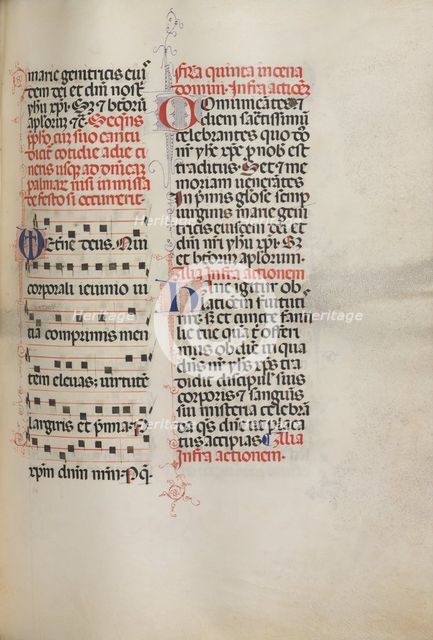 marie genitricis eius
dem dei et dni nostri
yhu xpi. Sz et btorum
aplorum. et c. Sequens
pfaciо cum suo cantu
dicitur cotidie a die ci
neris usque ad dominicam
palmarum nisi in missa
de festo si occurerit.
eterne deus. Qui
corporali ieiunio ui
tia comprimis men
tem eleuas: uirtutem
largiris et premia. P
xpm dnm nrm. P q.
feria quinta in cena
domini. Infra actionem
Comunicantes et
diem sacratissimum
celebrantes quo do
mi yhs xps p nobis est
traditus. Sed et me
moriam uenerantes
In primis gloriose semper
uirginis marie geni
tricis eiusdem dei et
dni nri yhu xpi. Sz
et btorum aplorum.
Alia infra actionem
Hanc igitur ob
lationem seruitu
tis sed et cuncte fami
lie tue qua tibi offeri
mus ob diem in qua
dns nr yhs xps tra
didit discipulis suis
corporis et sanguinis
sui misteria celebran
da qs dne ut placa
tus accipias. Alia
infra actionem.